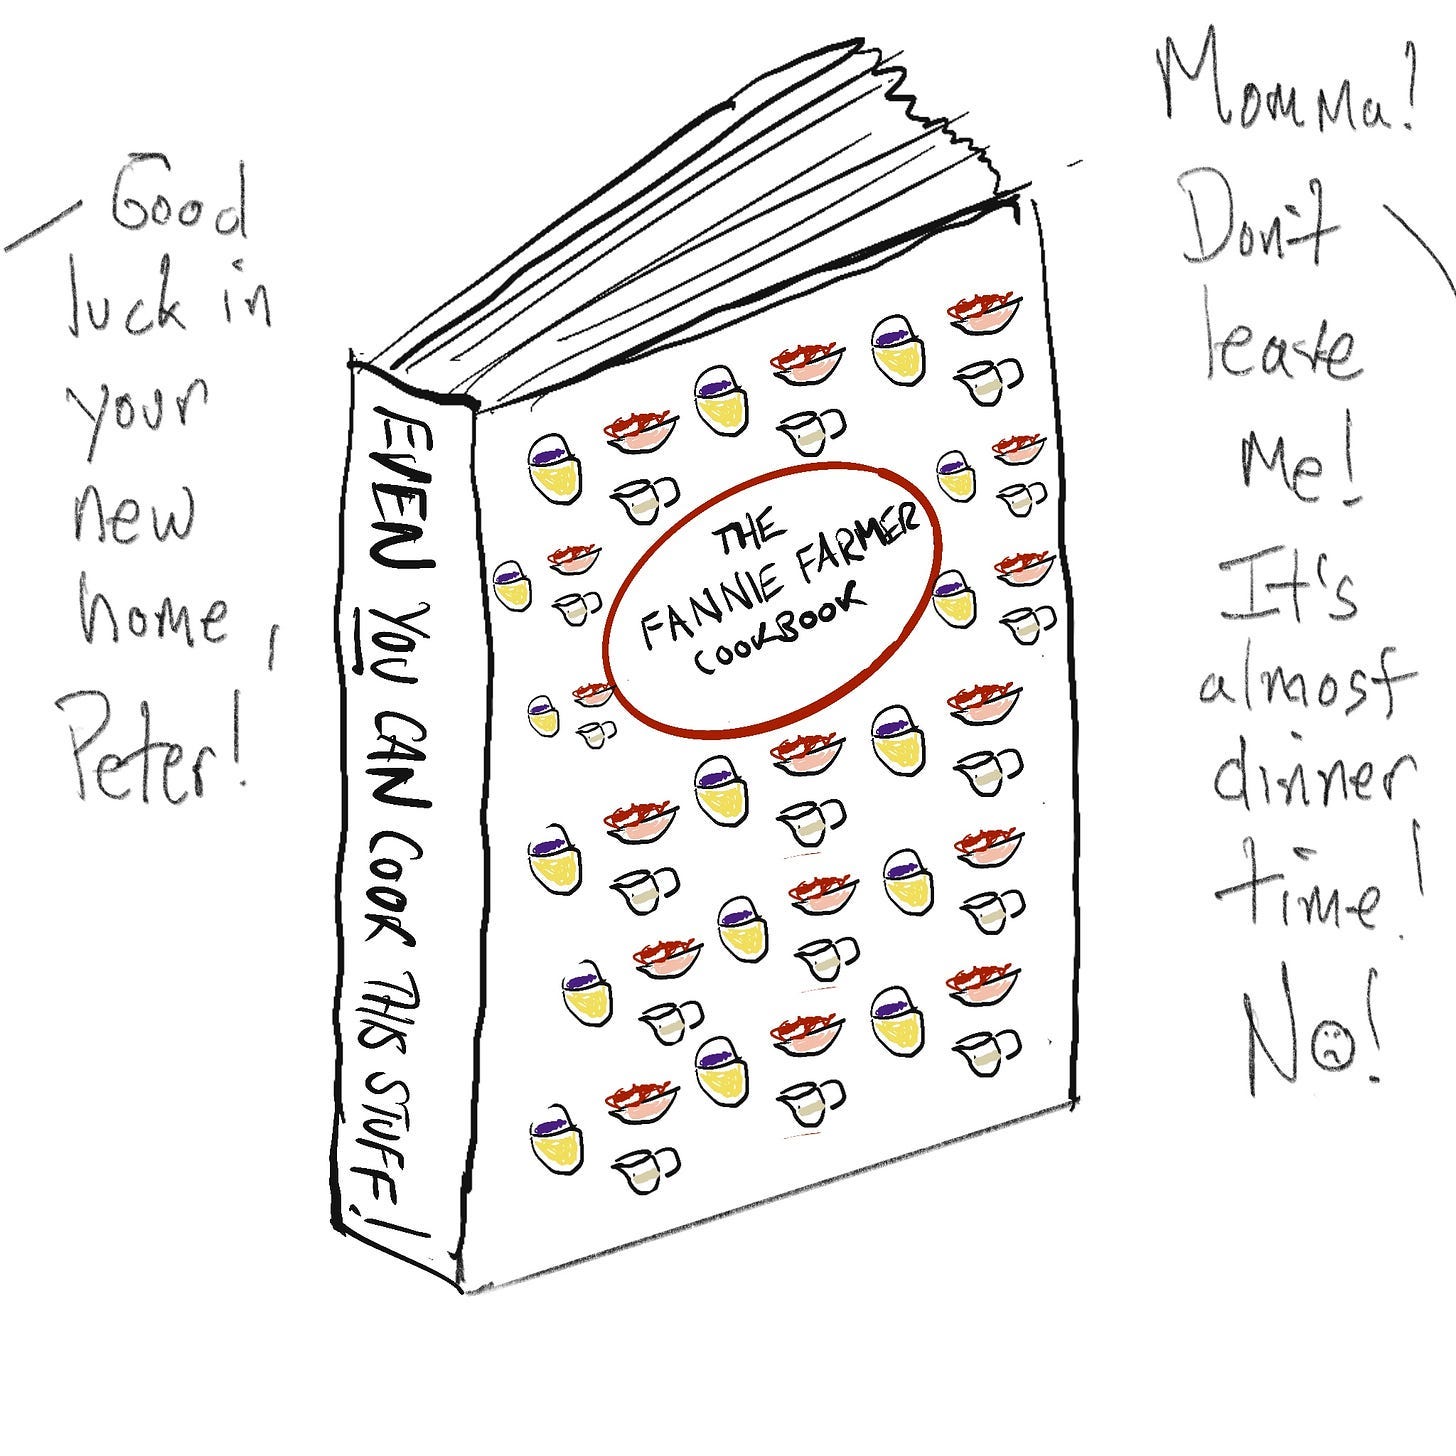 Good
luck in
your
new
home,
Peter!
EVEN YOU CAN COOK THIS STUFF!
THE
FANNIE FARMER
COOKBOOK
Momma!
Don't
leave
me!
It's
almost
dinner
time!
No!